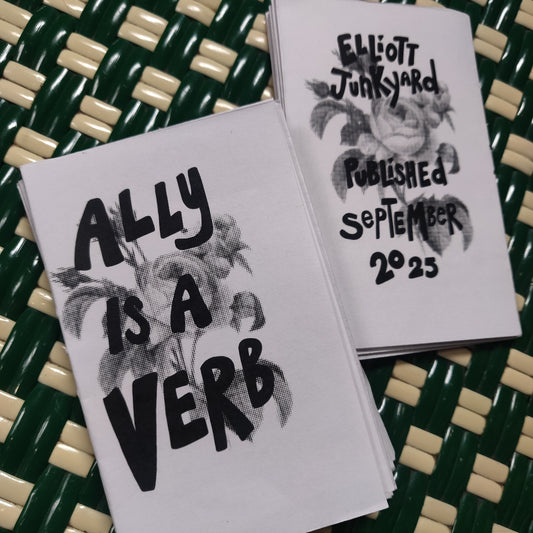 ALLY
IS A
VERB
ELLIOTT
JUNKYARD
PUBLISHED
SEPTEMBER
2025